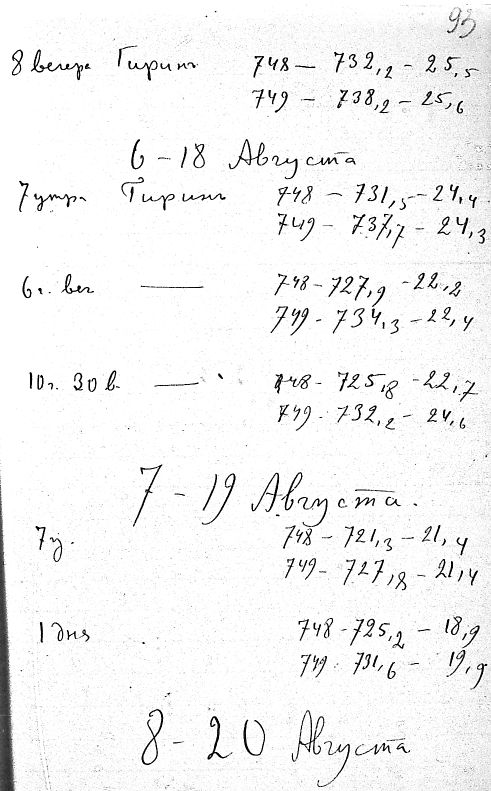 93
8 вечера Гиринъ 748 — 732,2 – 25,5
749 – 738,2 – 25,6
6 – 18 Августа
7 утра Гиринъ 748 – 731,5 – 24,4
749 – 737,7 – 24,3
6 ч. веч — 748 – 727,9 – 22,2
749 – 734,3 – 22,4
10 ч. 30 в. — 748 – 725,8 – 22,7
749 – 732,2 – 24,6
7 – 19 Августа.
7 у. 748 – 721,3 – 21,4
749 – 727,8 – 21,4
1 дня 748 – 725,2 – 18,9
749 – 731,6 – 19,9
8 – 20 Августа